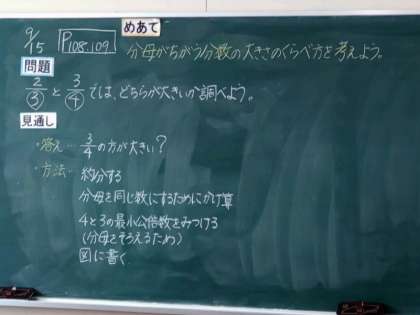 9/15
P108.109
めあて
分母がちがう分数の大きさのくらべ方を考えよう。
問題
2/3と3/4では、どちらが大きいか調べよう。
見通し
・答え…3/4の方が大きい?
・方法…約分する
分母を同じ数にするためにかけ算
4と3の最小公倍数をみつける
(分母をそろえるため)
図に書く